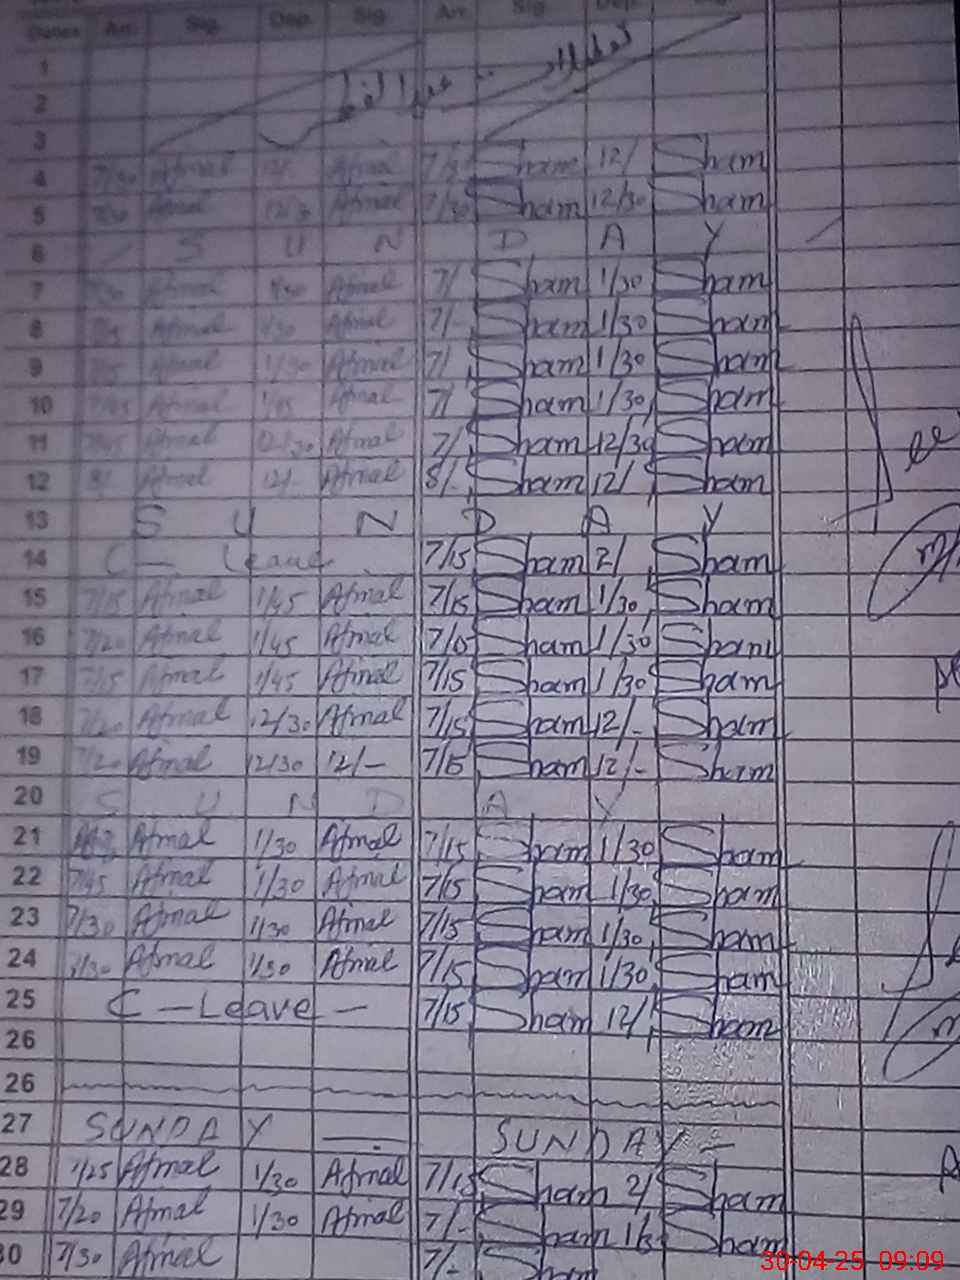 Dates Arr. Sig. Dep. Sig. Arr. Sig. Dep.
1
تعطیلات عید الفطر
2
3
4 7/30 Afmal 12/ Afmal 7/3 Sham 12/ Sham
5 7/30 Afmal 12/3 Afmal 7/30 Sham 12/30 Sham
6 S U N D A Y
7 7/30 Afmal 1/30 Afmal 7/ Sham 1/30 Sham
8 Afmal 1/30 Afmal 7/- Sham 1/30 Sham
9 7/15 Afmal 1/30 Afmal 7/ Sham 1/30 Sham
10 7/45 Afmal 1/45 Afmal 7/ Sham 1/30 Sham
11 7/45 Afmal 12/30 Afmal 7/- Sham 12/30 Sham
12 8/ Afmal 12/- Afmal 8/- Sham 12/ Sham
13 S U N D A Y
14 C - Leave 7/15 Sham 2/ Sham
15 7/15 Afmal 1/45 Afmal 7/15 Sham 1/30 Sham
16 7/20 Afmal 1/45 Afmal 7/15 Sham 1/30 Sham
17 7/15 Afmal 1/45 Afmal 7/15 Sham 1/30 Sham
18 7/20 Afmal 12/30 Afmal 7/15 Sham 12/- Sham
19 7/20 Afmal 12/30 12/- 7/15 Sham 12/- Sham
20 S U N D A Y
21 Afmal 1/30 Afmal 7/15 Sham 1/30 Sham
22 7/45 Afmal 1/30 Afmal 7/15 Sham 1/30 Sham
23 7/30 Afmal 1/30 Afmal 7/15 Sham 1/30 Sham
24 7/30 Afmal 1/30 Afmal 7/15 Sham 1/30 Sham
25 C - Leave - 7/15 Sham 12/ Sham
26
26
27 SUNDAY — SUNDAY -
28 7/25 Afmal 1/30 Afmal 7/15 Sham 2/ Sham
29 7/20 Afmal 1/30 Afmal 7/- Sham 1/3 Sham
30 7/30 Afmal 7/- Sham
30-04-25 09:09